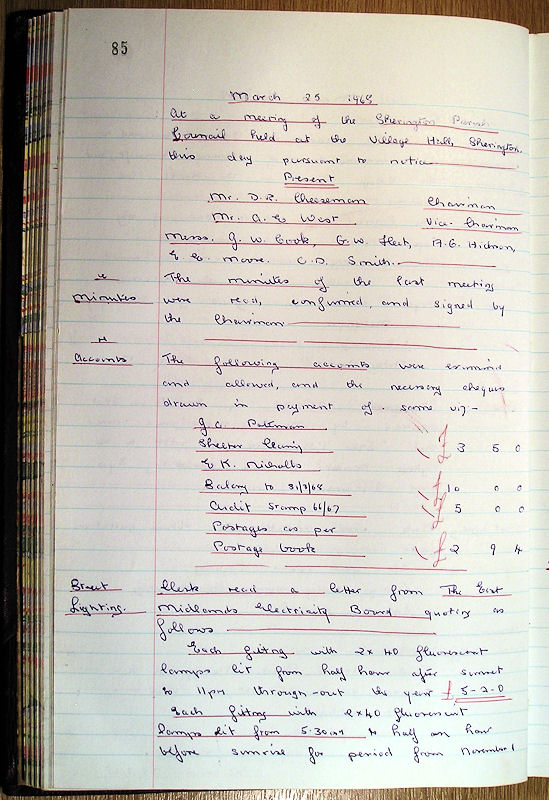 85
March 25 1968
At a meeting of the Sherington Parish
Council held at the Village Hall, Sherington,
this day pursuant to notice
Present
Mr. D.R. Cheeseman Chairman
Mr. A. E West Vice-Chairman
Messs. G. W. Cook, G.W. Fleet, A.G. Hickson,
E. C. Moore. C.D. Smith.
Minutes
The minutes of the last meeting
were read, confirmed, and signed by
the Chairman
Accounts
The following accounts were examined
and allowed, and the necessary cheques
drawn in payment of same viz-
J.C. Pateman
Shelter Cleaning £3 5 0
E K. Nicholls
Salary to 31/3/68 £10 0 0
Audit Stamp 66/67 £5 0 0
Postages as per
Postage book £2 9 4
Street
Lighting.
Clerk read a letter from The East
Midlands Electricity Board quoting as
follows
Each fitting with 2x40 fluorescent
lamps lit from half hour after sunset
to 11pm through-out the year £5-2-0
Each fitting with 2x40 fluorescent
lamps lit from 5.30am to half an hour
before sunrise for period from November 1